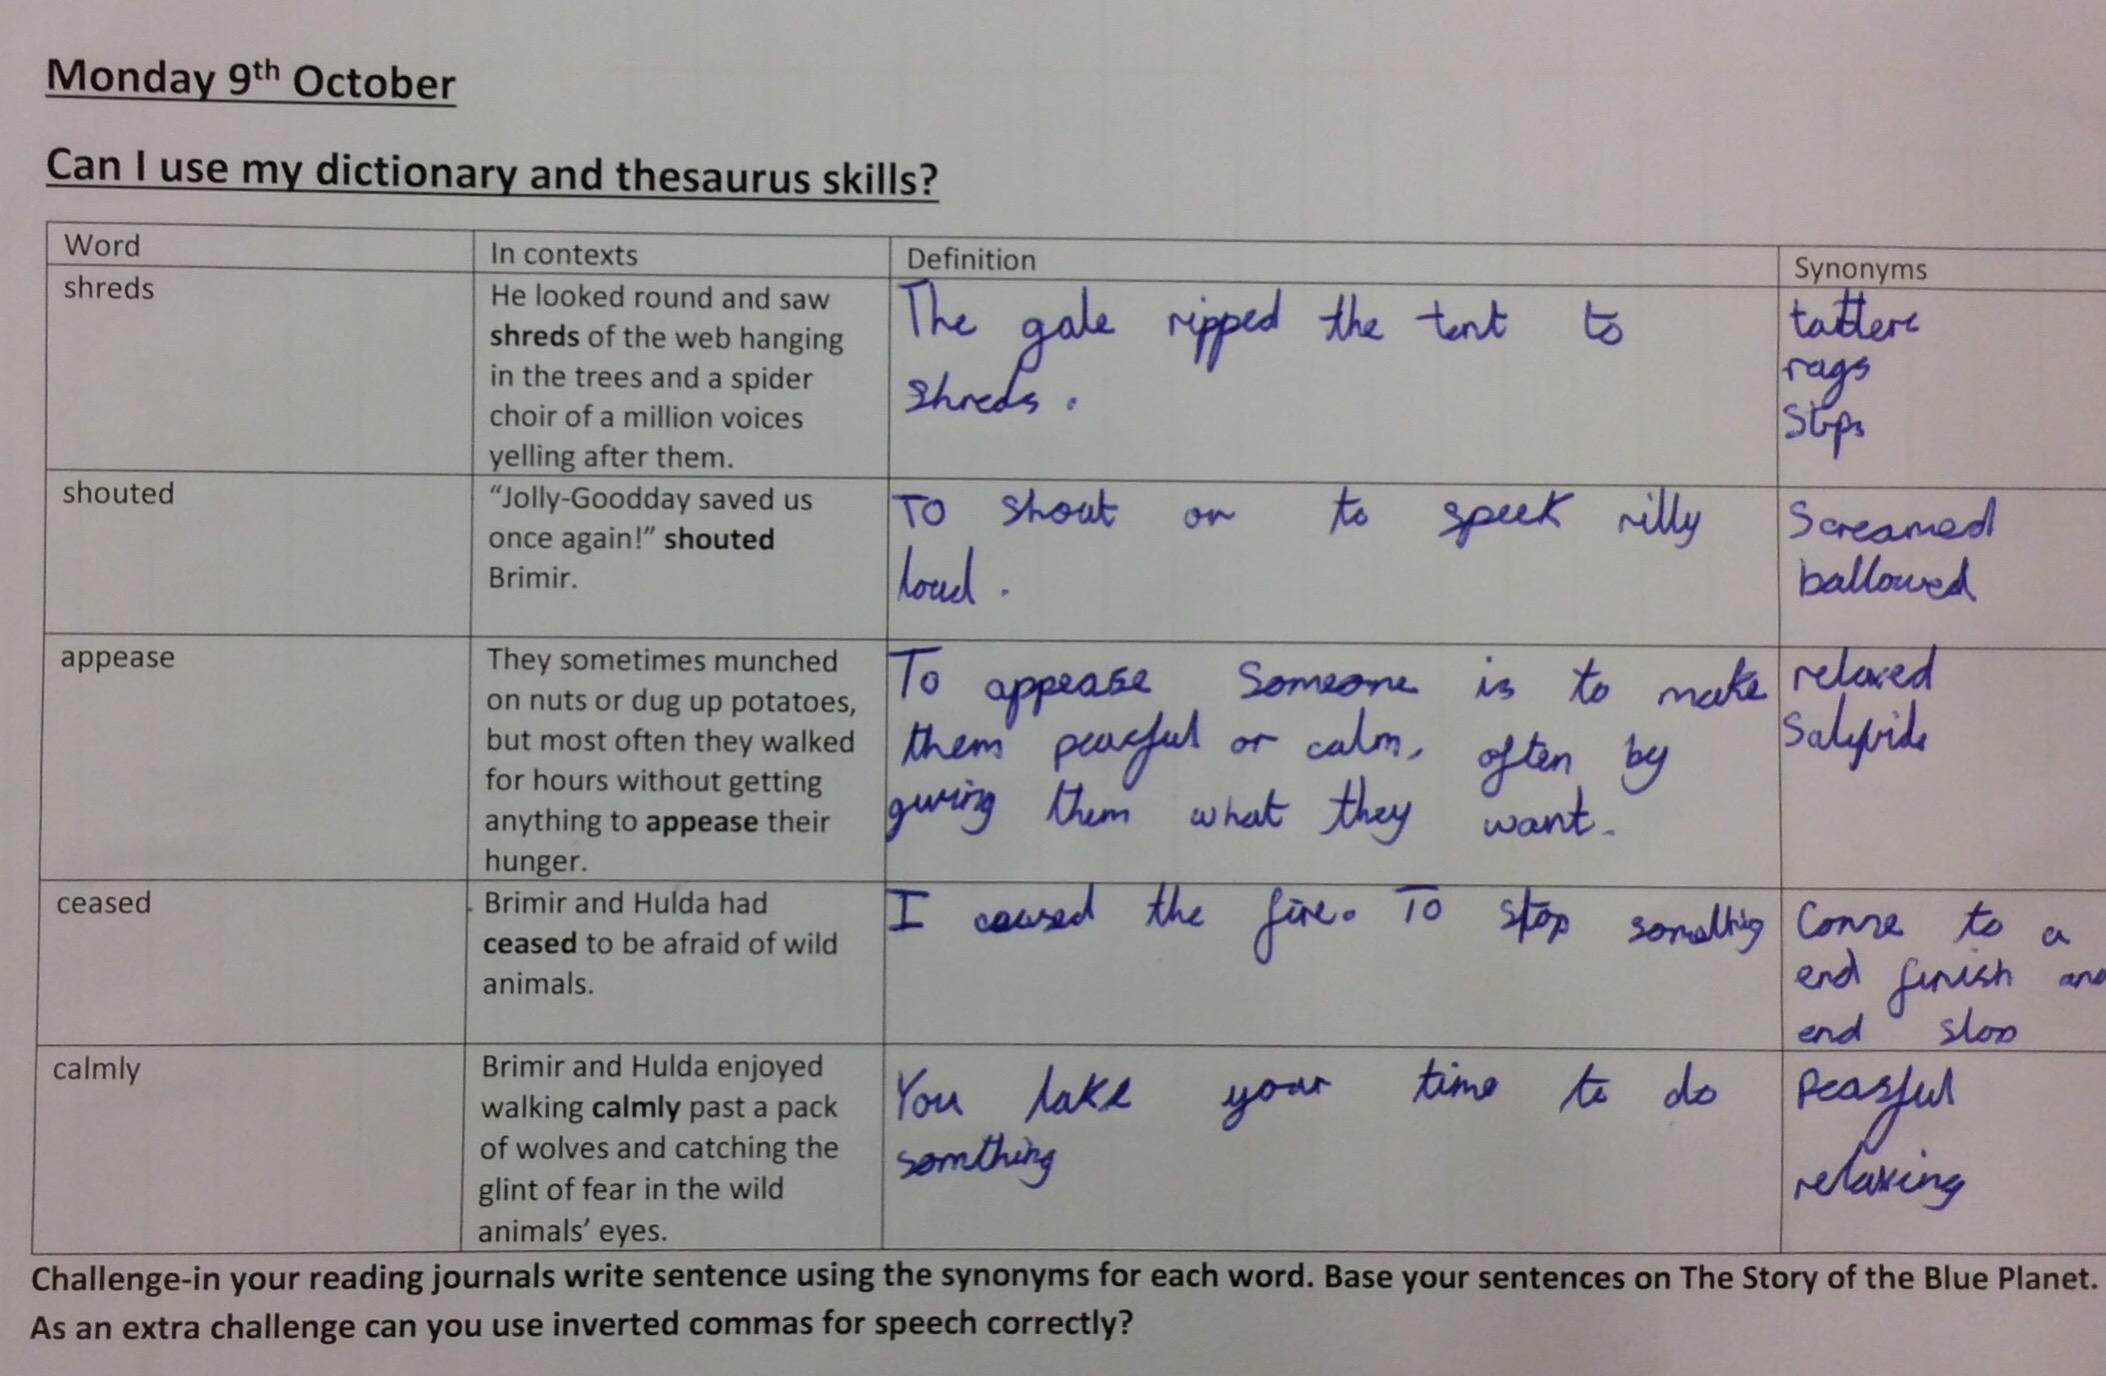 Monday 9th October
Can I use my dictionary and thesaurus skills?
Word
In contexts
Definition
Synonyms
shreds
He looked round and saw
shreds of the web hanging
in the trees and a spider
choir of a million voices
yelling after them.
The gale ripped the tent to
shreds.
tatters
rags
shouted
"Jolly-Goodday saved us
once again!" shouted
Brimir.
To shout or to speek rilly
loud.
Screamed
ballowed
appease
They sometimes munched
on nuts or dug up potatoes,
but most often they walked
for hours without getting
anything to appease their
hunger.
To appease Someone is to make
them peacful or calm, often by
giving them what they want.
relaxed
ceased
Brimir and Hulda had
ceased to be afraid of wild
animals.
I ceased the fire. To stop somethig
Come to a
end finish and
end stop
calmly
Brimir and Hulda enjoyed
walking calmly past a pack
of wolves and catching the
glint of fear in the wild
animals' eyes.
You take your time to do
somthing
Peasful
relaxing
Challenge-in your reading journals write sentence using the synonyms for each word. Base your sentences on The Story of the Blue Planet.
As an extra challenge can you use inverted commas for speech correctly?